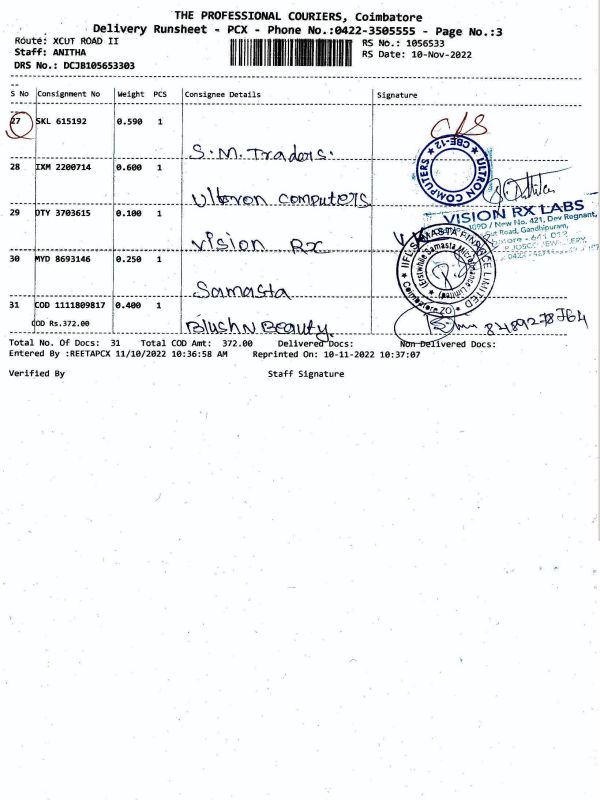 THE PROFESSIONAL COURIERS, Coimbatore
Delivery Runsheet - PCX - Phone No.:0422-3505555 - Page No.:3
Route: XCUT ROAD II RS No.: 1056533
Staff: ANITHA RS Date: 10-Nov-2022
DRS No.: DCJB105653303
S No Consignment No Weight PCS Consignee Details Signature
27 SKL 615192 0.590 1
S.M. Traders.
28 IXM 2200714 0.600 1
Ultron computers
29 DTY 3703615 0.100 1
Vision Rx
30 MYD 8693146 0.250 1
Samasta
31 COD 1111809817 0.400 1
COD Rs.372.00 Blush N Beauty.
ULTRON COMPUTERS CBE-12
VISION RX LABS
109D / New No. 421, Dev Regnant,
Road, Gandhipuram,
IIFL SAMASTA FINANCE LIMITED
(Erstwhile Samasta Microfinance Limited)
Coimbatore ZO
8489278764
Total No. Of Docs: 31 Total COD Amt: 372.00 Delivered Docs: Non Delivered Docs:
Entered By :REETAPCX 11/10/2022 10:36:58 AM Reprinted On: 10-11-2022 10:37:07
Verified By Staff Signature